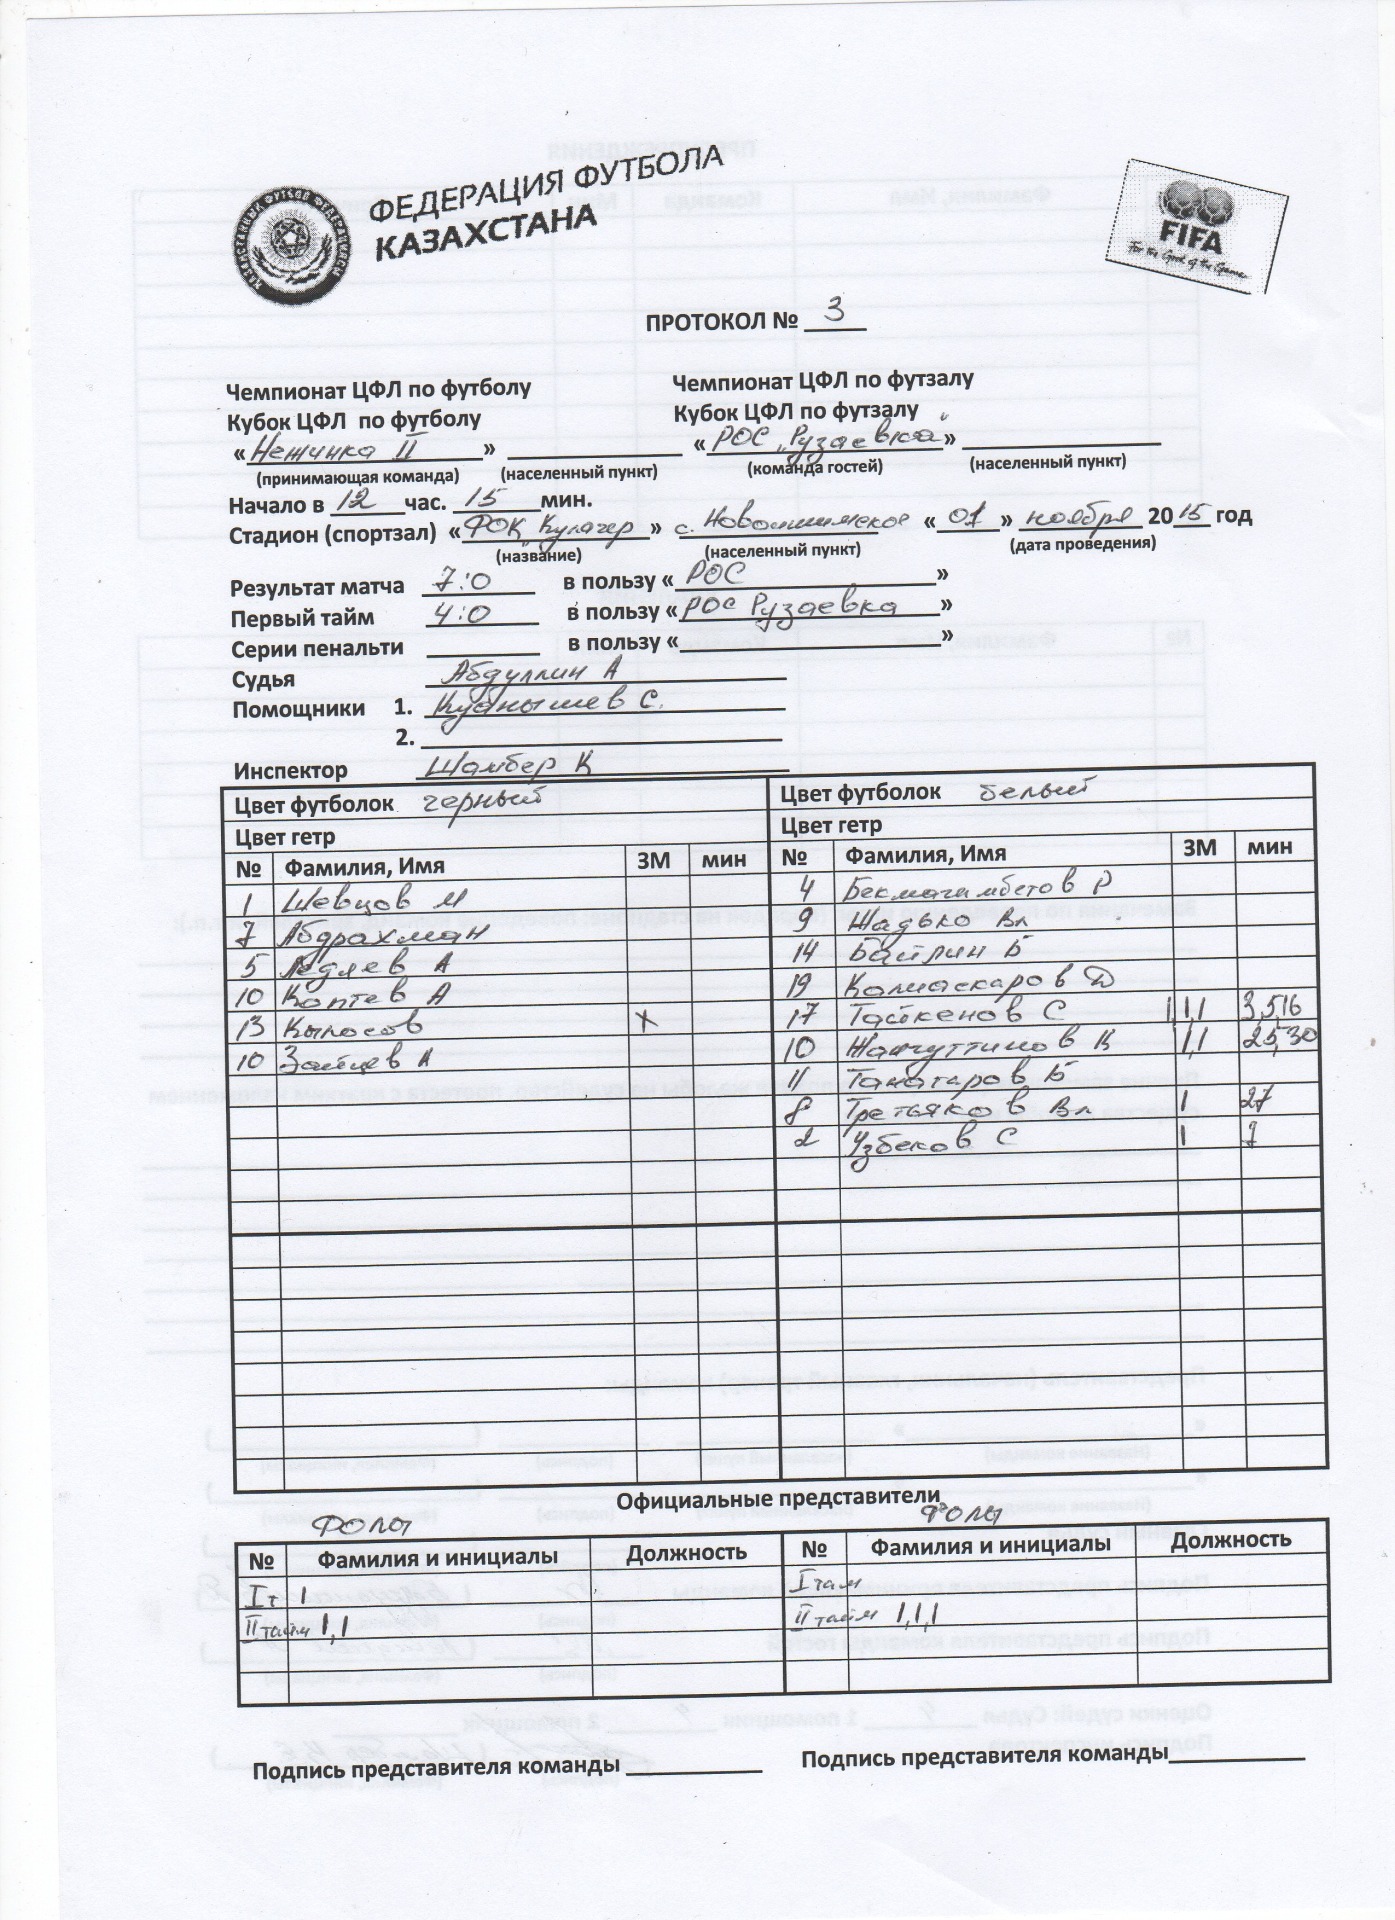 ФЕДЕРАЦИЯ ФУТБОЛА
КАЗАХСТАНА
FIFA
For the Good of the Game
ПРОТОКОЛ № 3
Чемпионат ЦФЛ по футболу Чемпионат ЦФЛ по футзалу
Кубок ЦФЛ по футболу Кубок ЦФЛ по футзалу
«Нежинка II» «РОС „Рузаевка"»
(принимающая команда) (населенный пункт) (команда гостей) (населенный пункт)
Начало в 12 час. 15 мин.
Стадион (спортзал) «ФОК „Кулагер» с. Новоишимское «01» ноября 2015 год
(название) (населенный пункт) (дата проведения)
Результат матча 7:0 в пользу «РОС»
Первый тайм 4:0 в пользу «РОС Рузаевка»
Серии пенальти в пользу « »
Судья Абдуллин А
Помощники 1. Куанышев С.
2.
Инспектор Шамбер К
Цвет футболок черный Цвет футболок белый
Цвет гетр Цвет гетр
№ Фамилия, Имя ЗМ мин № Фамилия, Имя ЗМ мин
1 Шевцов М 4 Бекмагамбетов Р
7 Абдрахман 9 Жадько Вл
5 Ледяев А 14 Байлин Б
10 Коптев А 19 Калиаскаров Д
13 Кылосов X 17 Тайкенов С 1,1,1 3,5,16
10 Зайцев А 10 Жангуттинов К 1,1 25,30
11 Танатаров Б
8 Третьяков Вл 1 27
2 Узбеков С 1 7
Официальные представители
Фолы Фолы
№ Фамилия и инициалы Должность № Фамилия и инициалы Должность
I т 1 I там
II тайм 1,1 II тайм 1,1,1
Подпись представителя команды Подпись представителя команды